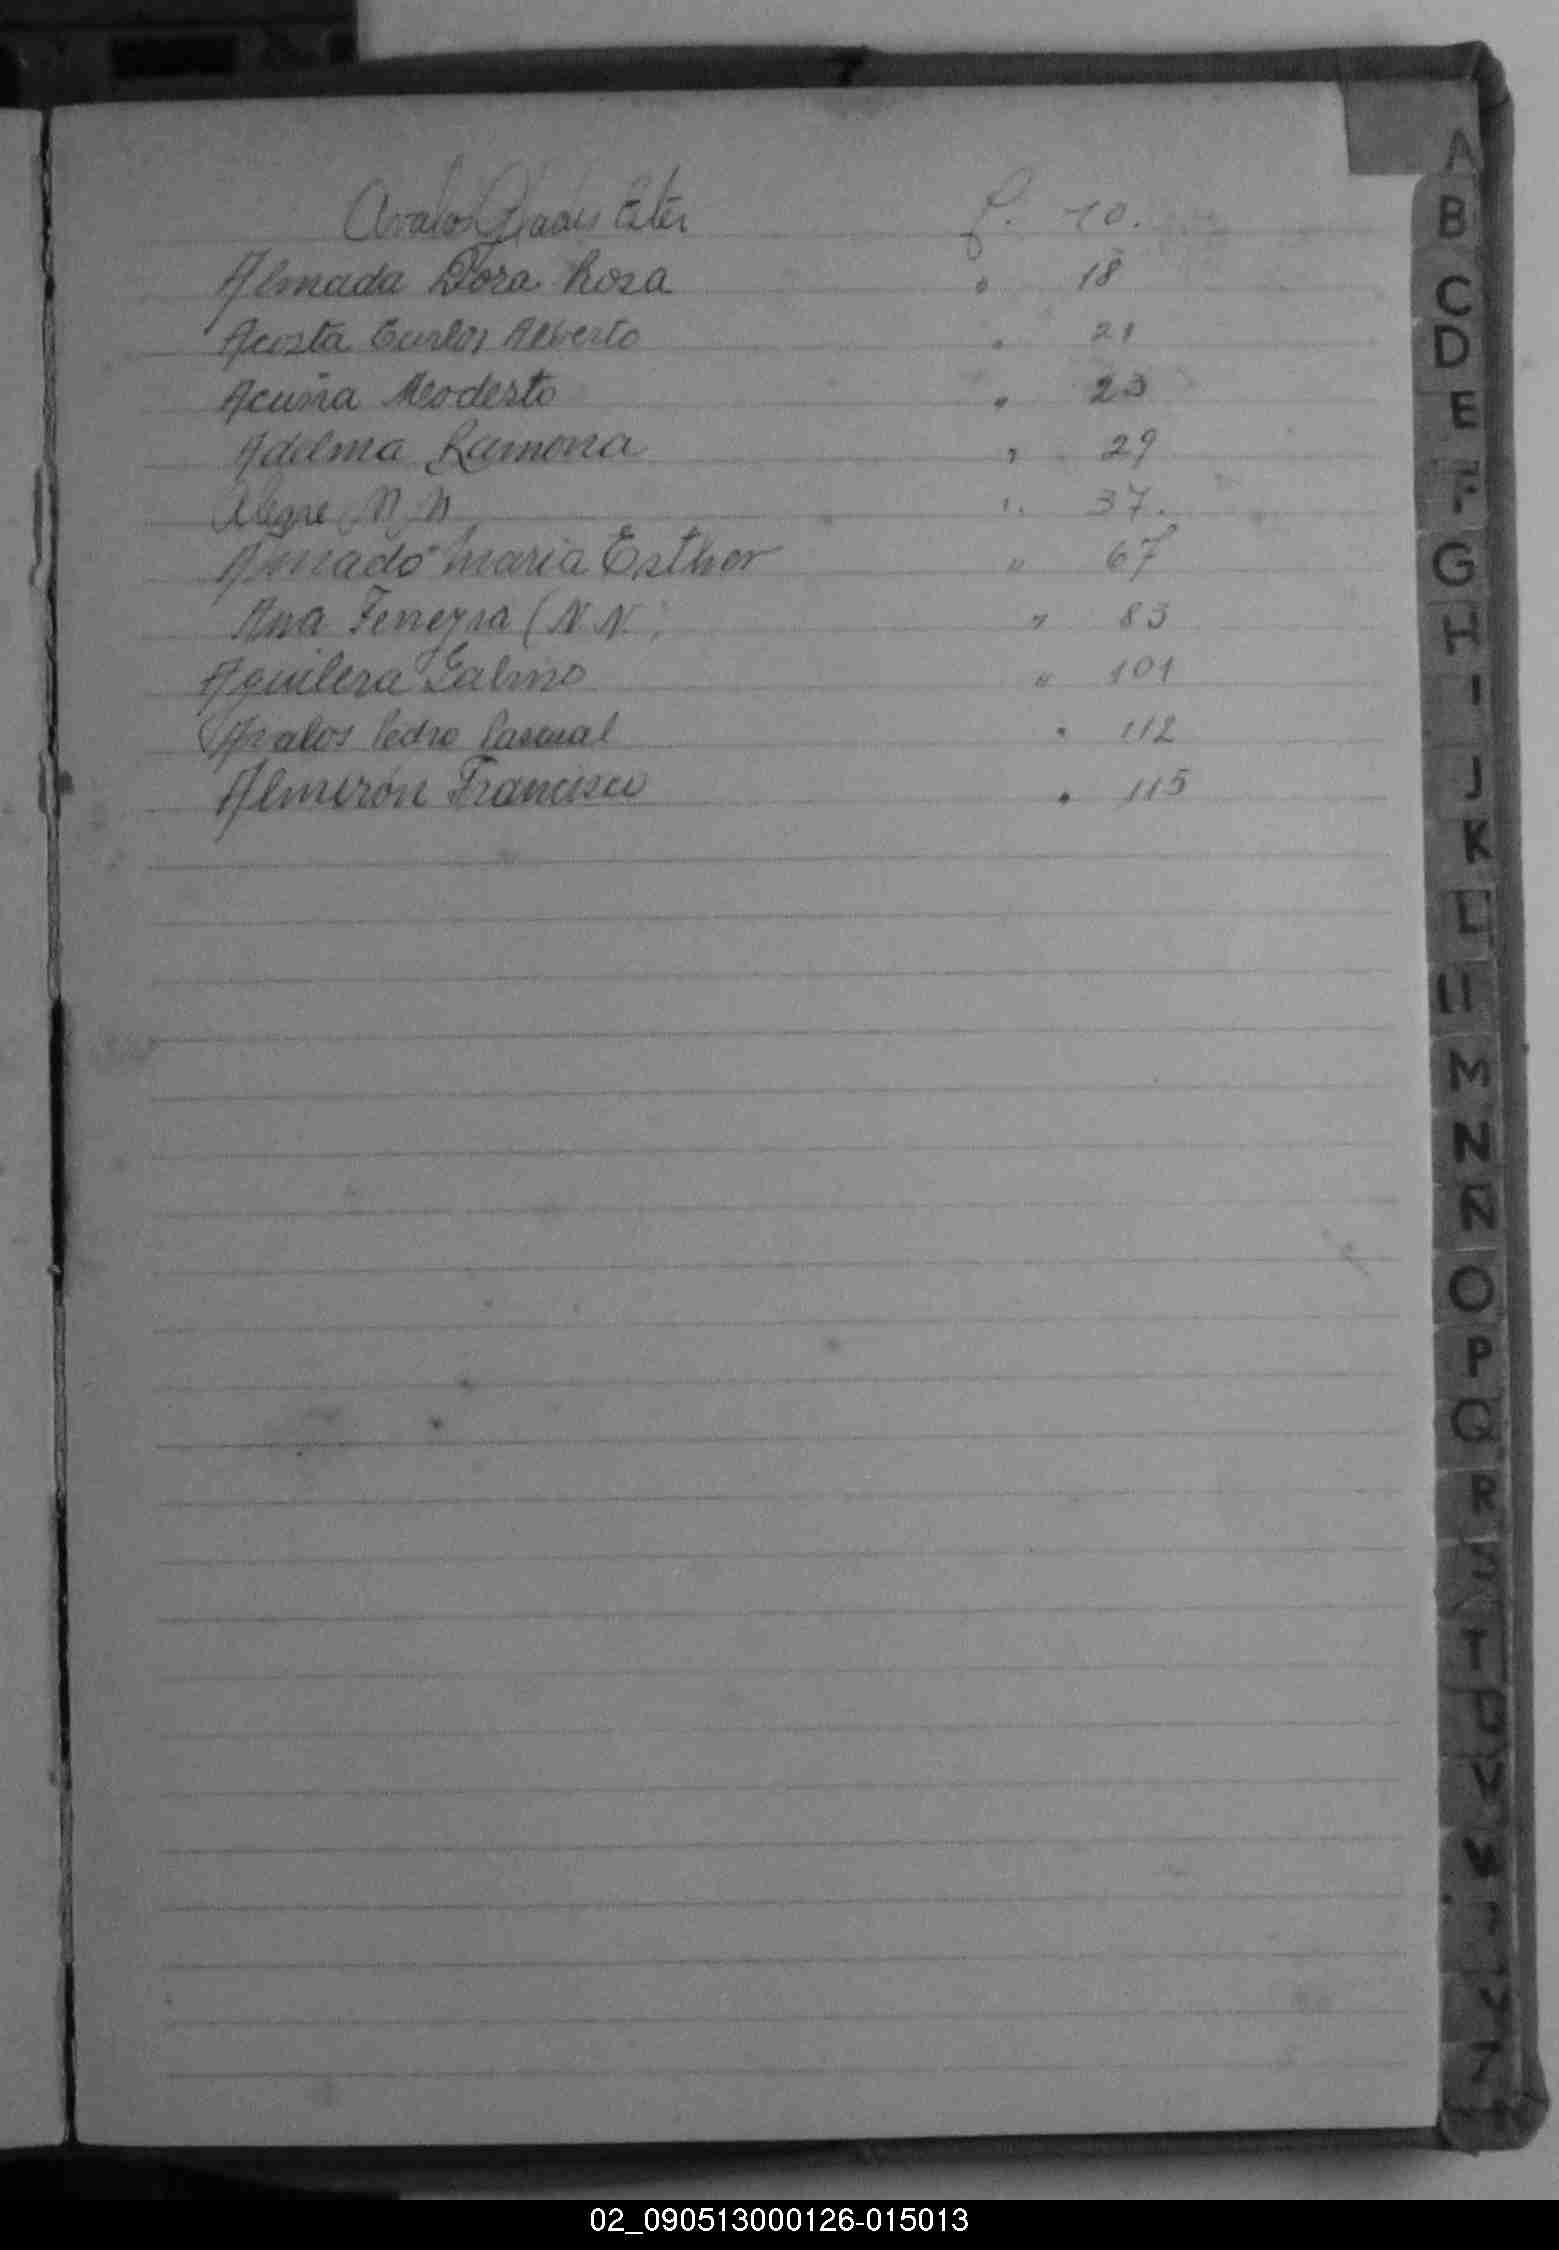 Avalos Gladis Ester f. 10.
Almada Dora Rosa " 18
Acosta Carlos Alberto " 21
Acuña Modesto " 23
Adelma Ramona " 29
Alegre N.N. " 37.
Amado Maria Esther " 67
Ana Ferreyra (N.N. " 83
Aguilera Galino " 101
Avalos Pedro Pascual " 112
Almirón Francisco " 115
A
B
C
D
E
F
G
H
I
J
K
L
Ll
M
N
Ñ
O
P
Q
R
S
T
U
V
Y
Z
02_090513000126-015013